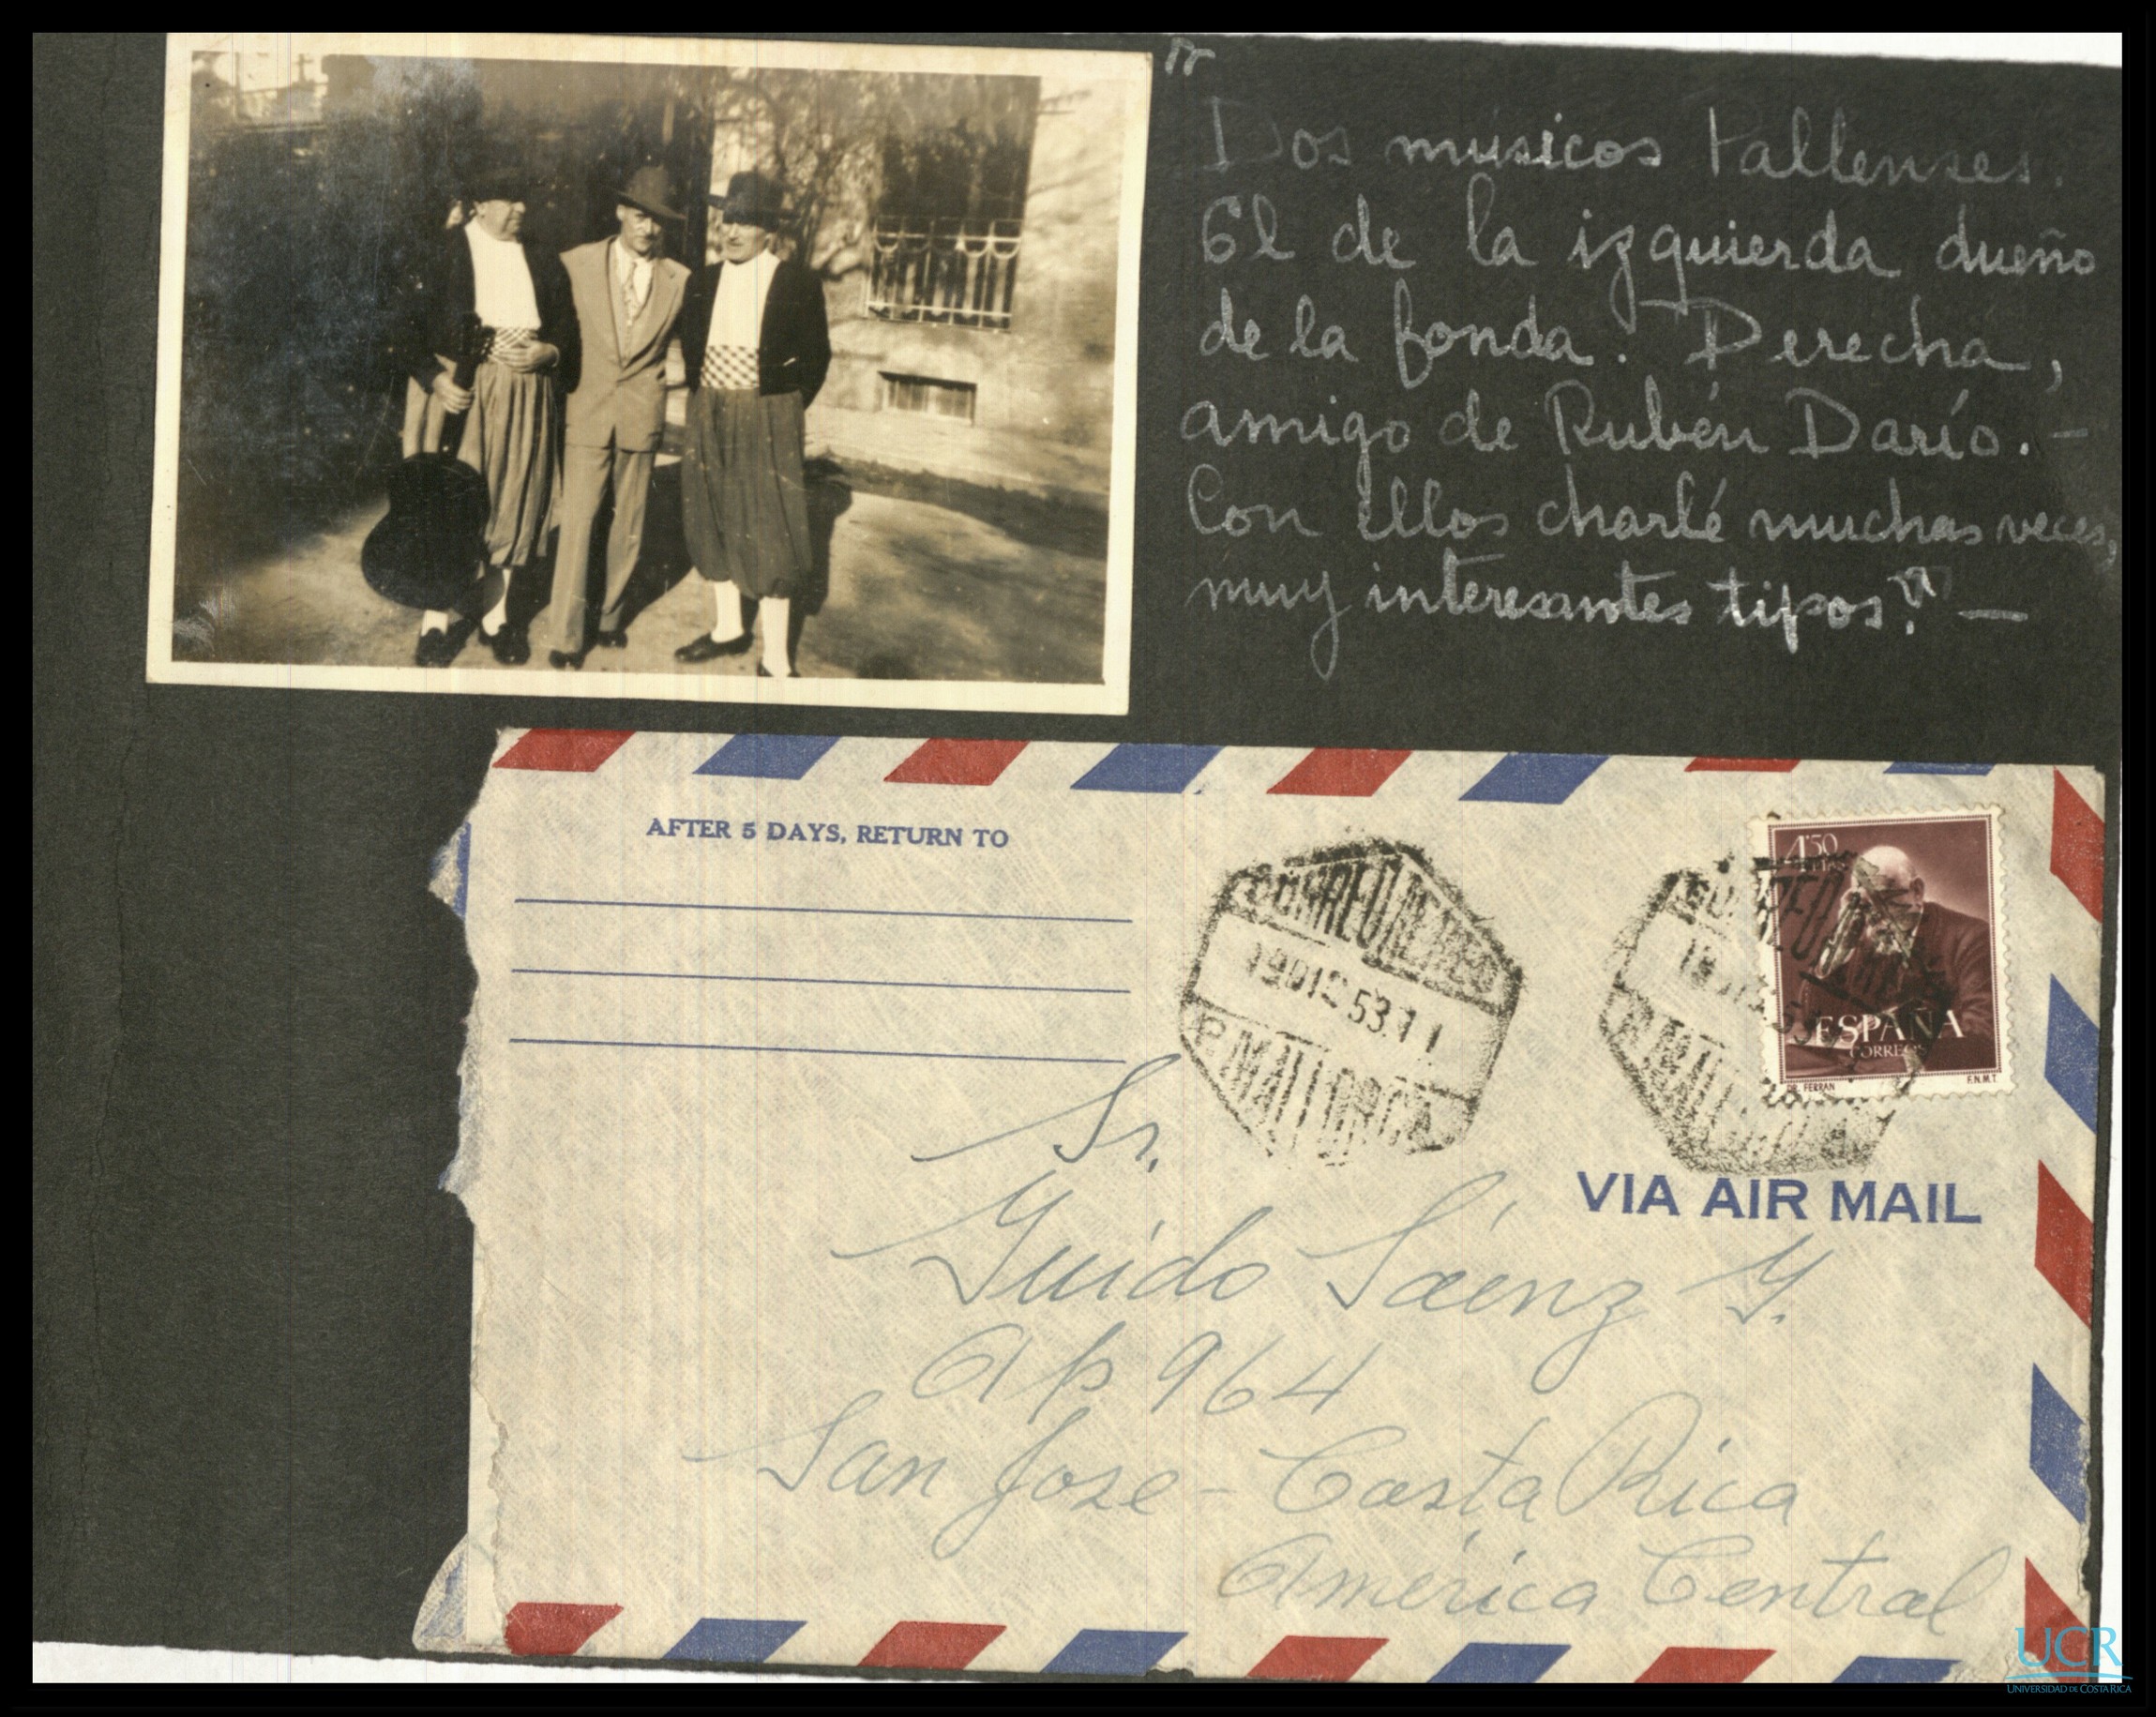 "
Dos músicos Vallenses.
El de la izquierda dueño
de la fonda. Derecha,
amigo de Rubén Darío. —
Con ellos charlé muchas veces,
muy interesantes tipos." —
AFTER 5 DAYS, RETURN TO
CORREO AEREO
19 DIC 53.11
P. MALLORCA
CORREO AEREO
P. MALLORCA
4'50
PTAS
ESPAÑA
CORREOS
DR. FERRAN
F.N.M.T.
VIA AIR MAIL
Sr.
Guido Sáenz G.
Ap 964
San José - Costa Rica
América Central
UCR
UNIVERSIDAD DE COSTA RICA